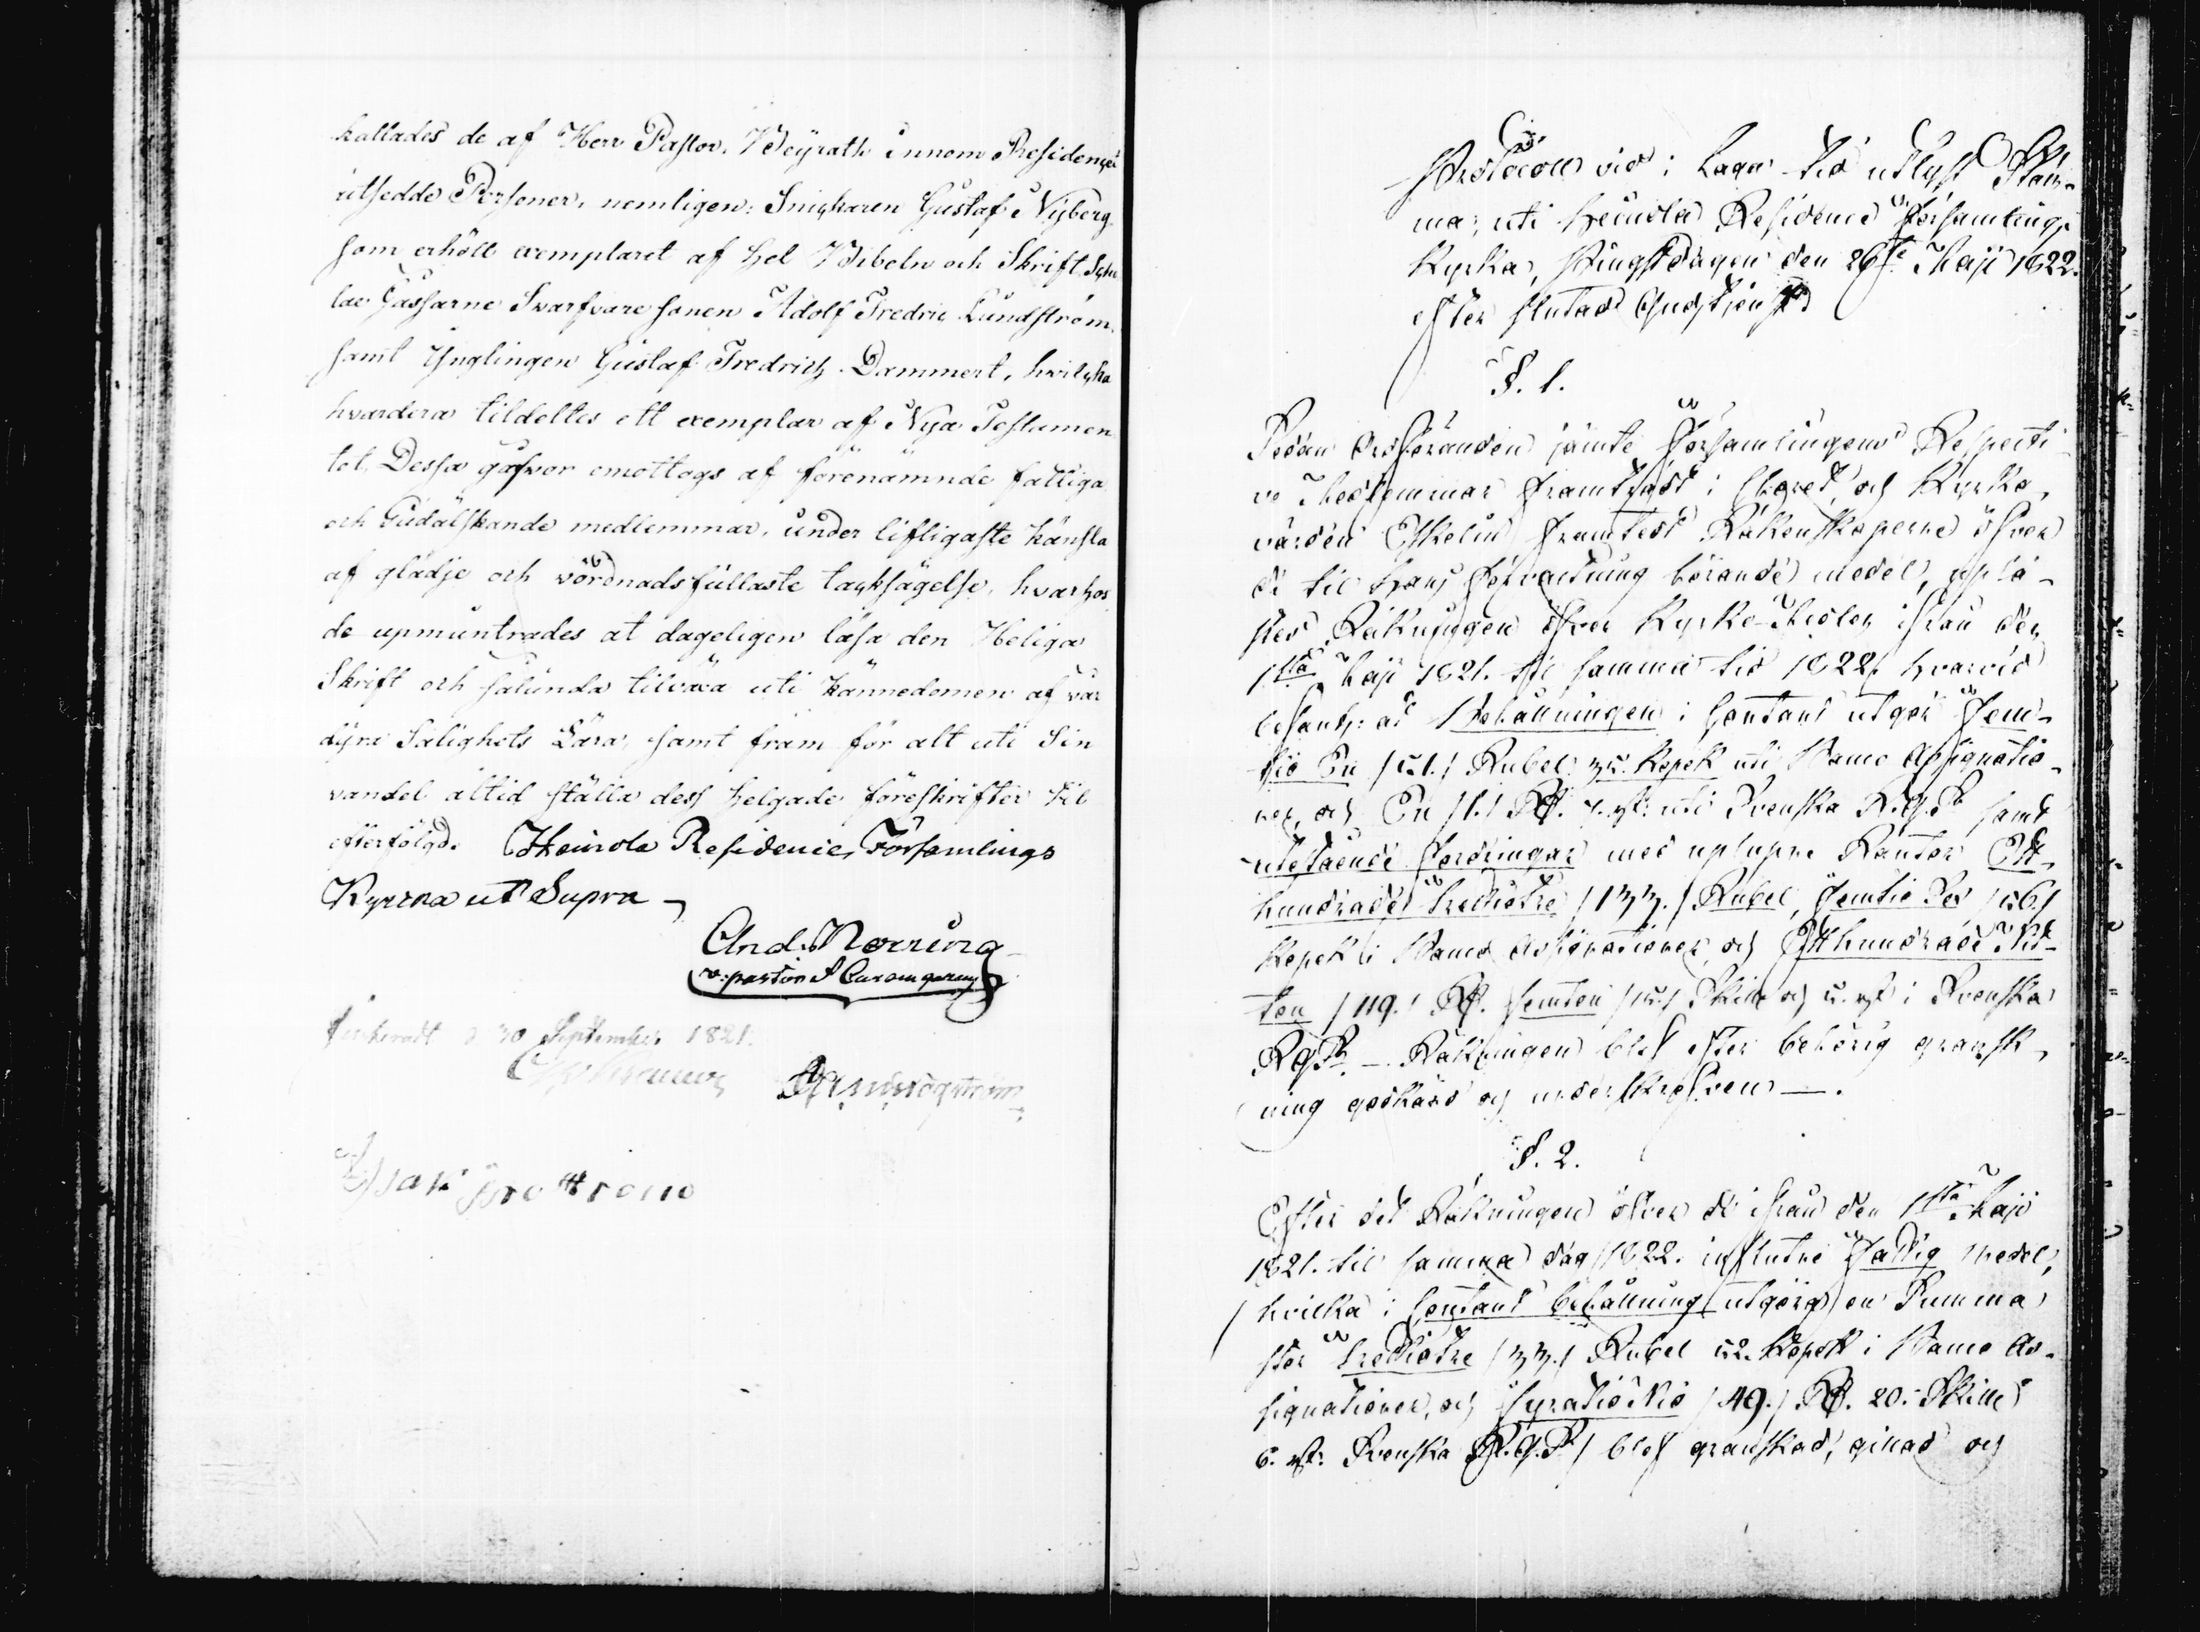 kallades de af Herr Pastor Weyrath innom Residencet
utsedde Personer, nemligen: Snickaren Gustaf Nyberg
som erhöll exemplaret af hel Bibeln och Skrift Scho
lae Gossarne Svarfvare sonen Adolf Fredric Lundström
samt Ynglingen Gustaf Fredrich Dammert, hvilcka
hvardera tildeltes ett exemplar af Nya Testamen
tet. Dessa gåfvor emottogs af förenämnde fattiga
och Gudälskande medlemmar, under lifligaste känsla
af glädje och vördnadsfullaste tacksägelse, hvarhos
de upmuntrades at dageligen läsa den Heliga
Skrift och sålunda tilväxa uti kännedomen af vår
dyra Salighets Lära, samt fram för alt uti Sin
vandel altid ställa dess helgade föreskrifter til
efterfölgd. Heinola Residence Församlings
Kyrcka ut Supra
And. Norring
v: pastor
Justeradt d 30 September 1821.
Protocoll vid i Laga tid utlyst Stäm-
ma, uti Heinola Residence Församlings
Kyrka, Pingstdagen den 26te Maji 1822.
efter slutad Gudstjenst
§. 1.
Sedan Ordföranden jämte Församlingens Respecti-
ve Medlemmar framträdt i Choret, och Kyrko
värden Eskelin framtedt Räkenskaperne öfver
de til Hans förvaltning hörande medel, uplä-
stes Räkningen öfver Kyrko-Medlen ifrån den
1sta Maji 1821. til samma tid 1822, hvarvid
befants: at Behållningen i Contant utgör Fem-
tio En /51./ Rubel 35. Kopek uti Banco Assignatio-
ner, och En /1./ Rd. uti Svenska R.G.S. samt
utestående fordringar med uplupne Räntor Ett
hundrade Trettiotre /133./ Rubel, Femtio Sex /56/
Kopek i Banco Assignationer, och Ett hundrade Nit-
ton /119./ Rd. femton /15/ Skill. och 5. rst. i Svenska
RGS. – Räkningen blef efter behörig gransk-
ning godkänd och underskrefven –.
§. 2.
Efter det Räkningen öfver de ifrån den 1sta Maji
1821. til samma dag 1822. influtne Fattig medel,
/hvilka i Contant behållning utgörs en Summa
stor Trettiotre /33./ Rubel 52. Kopek i Banco As-
signationer, och Fyratio Nio /49./ Rd. 20. Skill.
6. rst. Svenska R.G.S./ blef granskad, gillad och